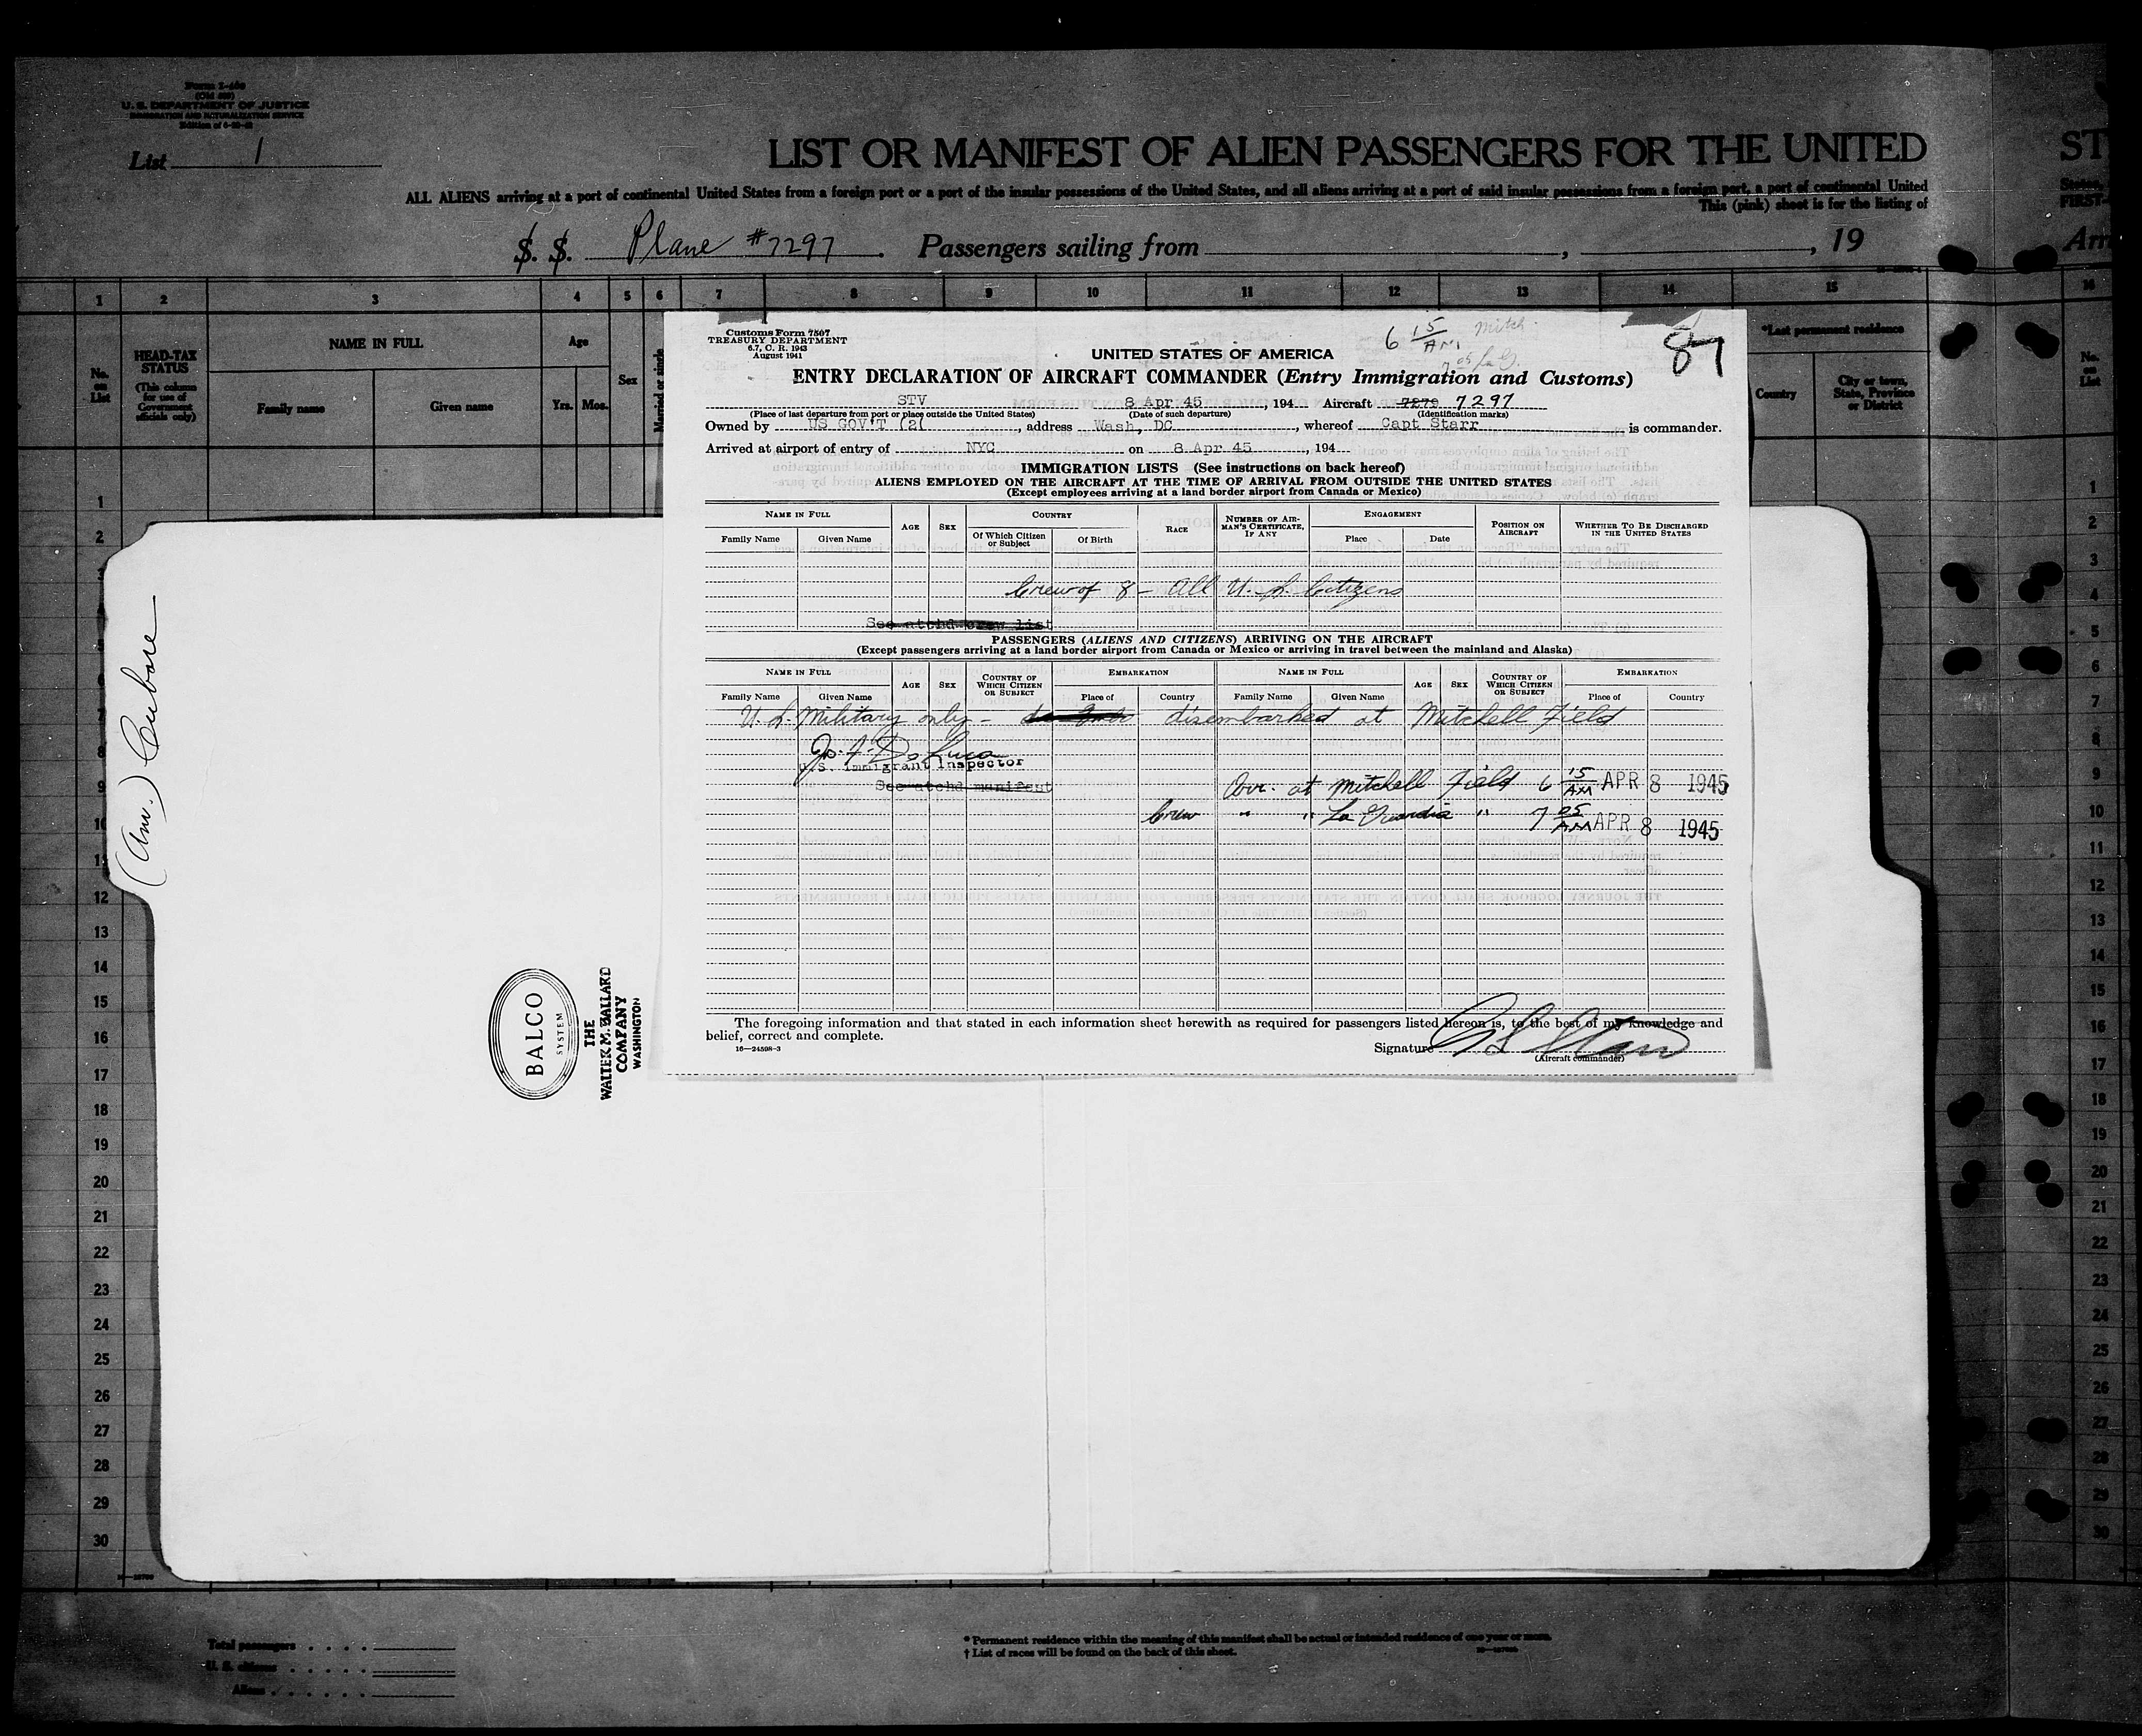 Form I-466
(Old 500)
U. S. DEPARTMENT OF JUSTICE
IMMIGRATION AND NATURALIZATION SERVICE
List 1
LIST OR MANIFEST OF ALIEN PASSENGERS FOR THE UNITED
ST
ALL ALIENS arriving at a port of continental United States from a foreign port or a port of the insular possessions of the United States, and all aliens arriving at a port of said insular possessions from a foreign port, a port of continental United
States,
This (pink) sheet is for the listing of
FIRST-
S. S. Plane #7297. Passengers sailing from , , 19
Arri
1 2 3 4 5 6 7 8 9 10 11 12 13 14 15 16
No. on List
HEAD-TAX STATUS
(This column for use of Government officials only)
NAME IN FULL
Family name Given name
Age
Yrs. Mos.
Sex
Married or single
*Last permanent residence
Country
City or town, State, Province or District
No. on List
Customs Form 7507
TREASURY DEPARTMENT
6.7, C. R. 1943
August 1941
6 15 AM Mitch.
7 05
87
UNITED STATES OF AMERICA
ENTRY DECLARATION OF AIRCRAFT COMMANDER (Entry Immigration and Customs)
STV 8 Apr 45, 194 Aircraft 7279 7297
(Place of last departure from port or place outside the United States) (Date of such departure) (Identification marks)
Owned by US GOV'T (2(, address Wash, DC, whereof Capt Starr is commander.
Arrived at airport of entry of NYC on 8 Apr 45, 194
IMMIGRATION LISTS (See instructions on back hereof)
ALIENS EMPLOYED ON THE AIRCRAFT AT THE TIME OF ARRIVAL FROM OUTSIDE THE UNITED STATES
(Except employees arriving at a land border airport from Canada or Mexico)
NAME IN FULL AGE SEX COUNTRY RACE NUMBER OF AIRMAN'S CERTIFICATE, IF ANY ENGAGEMENT POSITION ON AIRCRAFT WHETHER TO BE DISCHARGED IN THE UNITED STATES
Family Name Given Name Of Which Citizen or Subject Of Birth Place Date
Crew of 8 - All U. S. Citizens
See atchd crew list
PASSENGERS (ALIENS AND CITIZENS) ARRIVING ON THE AIRCRAFT
(Except passengers arriving at a land border airport from Canada or Mexico or arriving in travel between the mainland and Alaska)
NAME IN FULL AGE SEX COUNTRY OF WHICH CITIZEN OR SUBJECT EMBARKATION NAME IN FULL AGE SEX COUNTRY OF WHICH CITIZEN OR SUBJECT EMBARKATION
Family Name Given Name Place of Country Family Name Given Name Place of Country
U. S. Military only - disembarked at Mitchell Field
Jo. F. De Luca
U.S. Immigrant Inspector
See atchd manifest
Arr. at Mitchell Field 6 15 AM APR 8 1945
Crew " " La Guardia " 7 05 AM APR 8 1945
The foregoing information and that stated in each information sheet herewith as required for passengers listed hereon is, to the best of my knowledge and
belief, correct and complete.
16—24598-3
Signature
(Aircraft commander)
(Am.)
BALCO
SYSTEM
THE
WALTER M. BALLARD
COMPANY
WASHINGTON
1 1
2 2
3 3
4
5
6
7
8
9 9
10 10
11 11
12 12
13 13
14 14
15 15
16 16
17 17
18 18
19 19
20 20
21 21
22 22
23 23
24 24
25 25
26 26
27 27
28 28
29 29
30 30
Total passengers
U. S. citizens
Aliens
* Permanent residence within the meaning of this manifest shall be actual or intended residence of one year or more.
† List of races will be found on the back of this sheet.